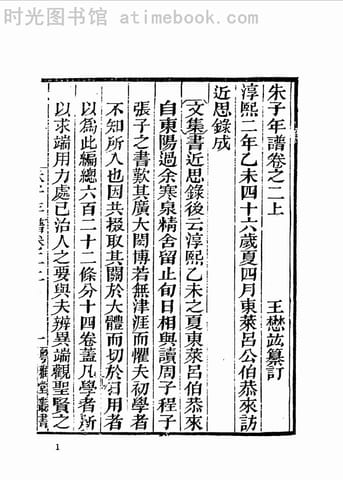 时光图书馆 - atimebook.com
朱子年譜卷之二上
王懋竑纂訂
淳熙二年乙未四十六歲夏四月東萊呂公伯恭來訪
近思錄成
文集書近思錄後云淳熙乙未之夏東萊呂伯恭來
自東陽過余寒泉精舍留止旬日相與讀周子程子
張子之書歎其廣大閎博若無津涯而懼夫初學者
不知所入也因共掇取其關於大體而切於日用者
以為此編總六百二十二條分十四卷蓋凡學者所
以求端用力處己治人之要與夫辨異端觀聖賢之
一 粵雅堂叢書
1